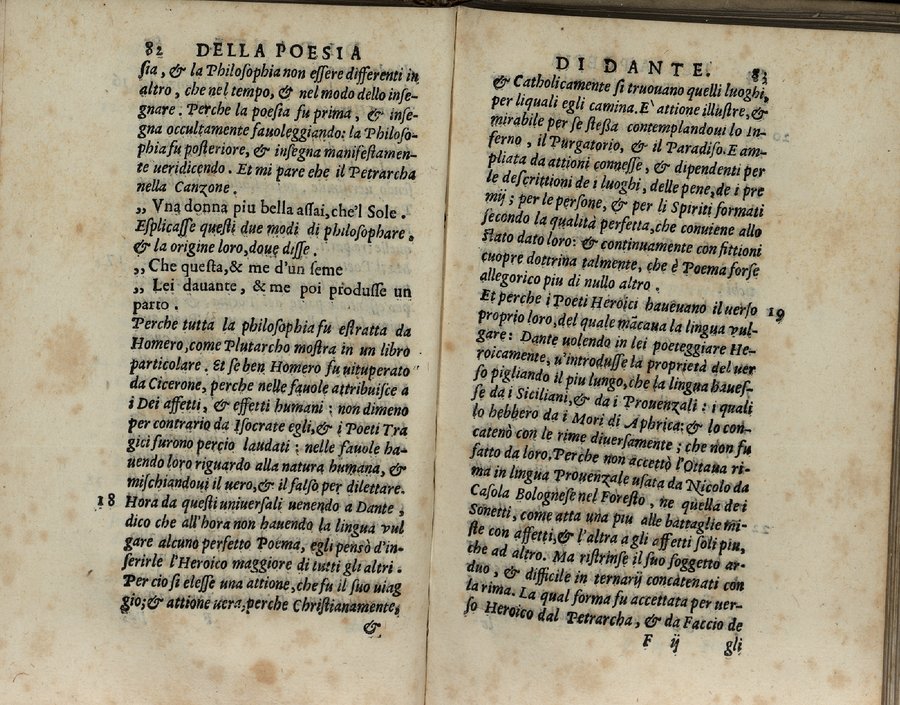 82 DELLA POESIA
ſia, & la Philoſophia non eſſere differenti in
altro, che nel tempo, & nel modo dello inſe-
gnare. Perche la poeſia fu prima, & inſe-
gna occultamente fauoleggiando: la Philoſo-
phia fu poſteriore, & inſegna manifeſtamen-
te ueridicendo. Et mi pare che il Petrarcha
nella Canzone.
„ Vna donna piu bella aſſai, che'l Sole.
Eſplicaſſe queſti due modi di philoſophare,
& la origine loro, doue diſſe.
„ Che queſta, & me d'un ſeme
„ Lei dauante, & me poi produſſe un
parto.
Perche tutta la philoſophia fu eſtratta da
Homero, come Plutarcho moſtra in un libro
particolare. Et ſe ben Homero fu uituperato
da Cicerone, perche nelle fauole attribuiſce a
i Dei affetti, & effetti humani: non dimeno
per contrario da Iſocrate egli, & i Poeti Tra
gici furono percio laudati: nelle fauole ha-
uendo loro riguardo alla natura humana, &
miſchiandoui il uero, & il falſo per dilettare.
18 Hora da queſti uniuerſali uenendo a Dante,
dico che all'hora non hauendo la lingua vul
gare alcuno perfetto Poema, egli penſò d'in-
ſerirle l'Heroico maggiore di tutti gli altri.
Per cio ſi eleſſe una attione, che fu il ſuo uiag
gio; & attione uera, perche Chriſtianamente,
&
DI DANTE. 83
& Catholicamente ſi truouano quelli luoghi,
per liquali egli camina. E` attione illuſtre, &
mirabile per ſe ſteſſa contemplandoui lo In-
ferno, il Purgatorio, & il Paradiſo. E am-
pliata da attioni conneſſe, & dipendenti per
le deſcrittioni de i luoghi, delle pene, de i pre
mij; per le perſone, & per li Spiriti formati
ſecondo la qualità perfetta, che conuiene allo
ſtato dato loro: & continuamente con fittioni
cuopre dottrina talmente, che è Poema forſe
allegorico piu di nullo altro.
Et perche i Poeti Heroici haueuano il uerſo 19
proprio loro, del quale mãcaua la lingua vul-
gare: Dante uolendo in lei poeteggiare He-
roicamente, u'introduſſe la proprietà del uer
ſo pigliando il piu lungo, che la lingua haueſ-
ſe da i Siciliani, & da i Prouenzali: i quali
lo hebbero da i Mori di Aphrica: & lo con-
catenò con le rime diuerſamente; che non fu
fatto da loro. Perche non accettò l'Ottaua ri-
ma in lingua Prouenzale uſata da Nicolo da
Caſola Bologneſe nel Foreſto, ne quella de i
Sonetti, come atta una piu alle battaglie mi-
ſte con affetti, & l'altra a gli affetti ſoli piu,
che ad altro. Ma riſtrinſe il ſuo ſoggetto ar-
duo, & difficile in ternarij concatenati con
la rima. La qual forma fu accettata per uer-
ſo Heroico dal Petrarcha, & da Faccio de
F ij gli